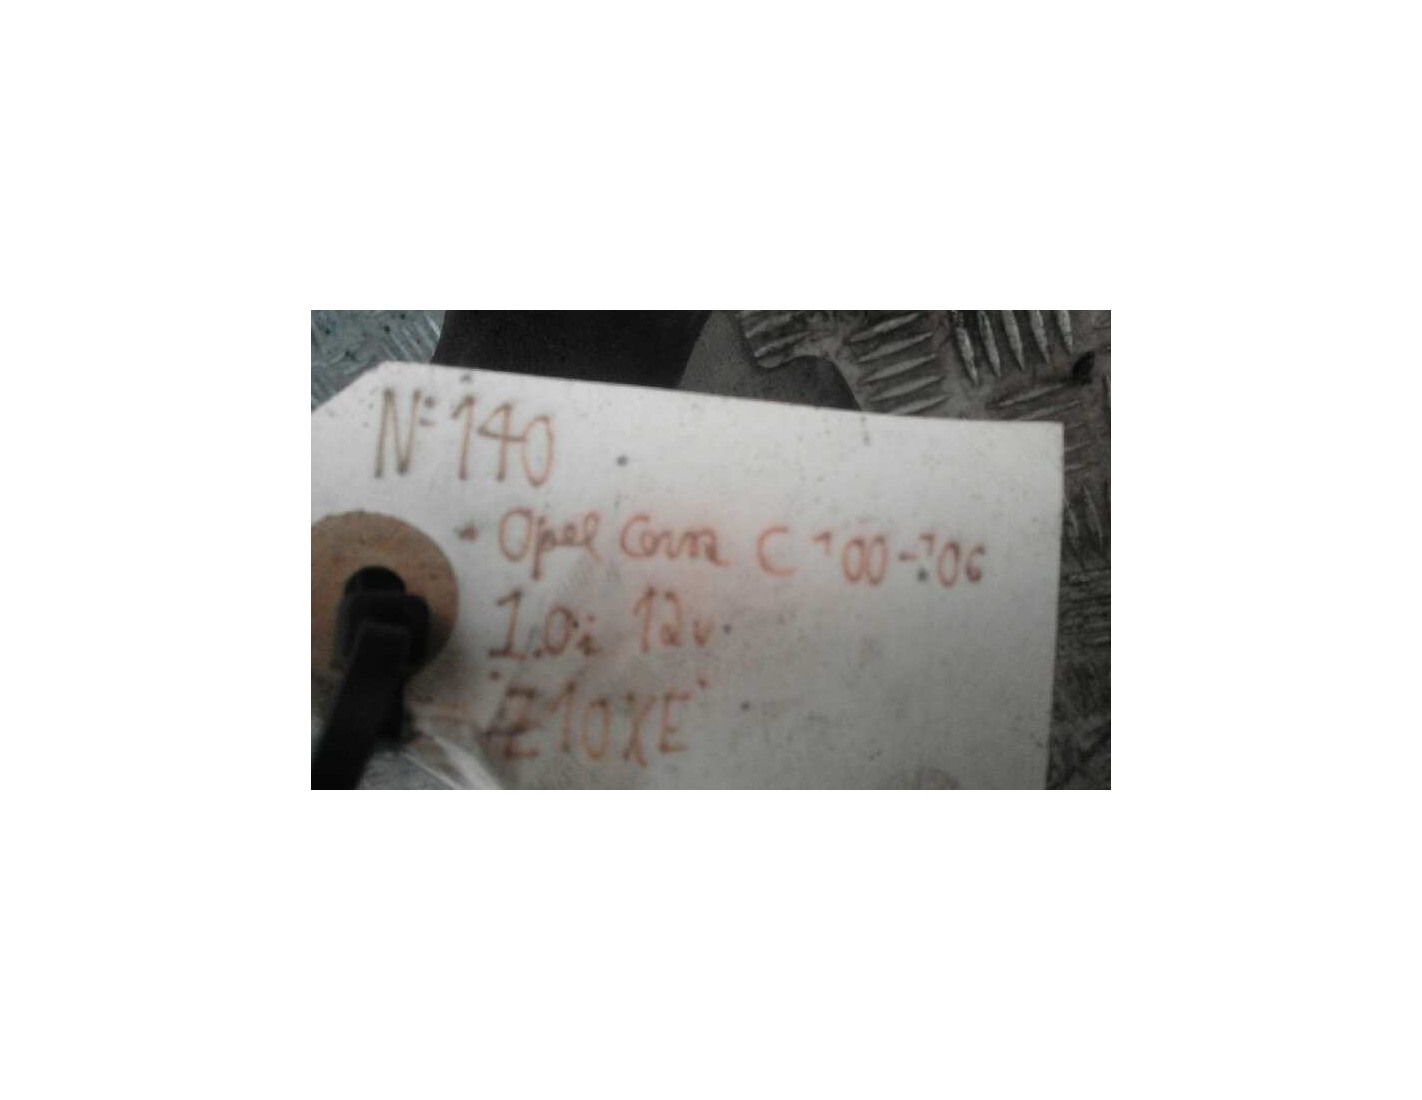 N: 140
- Opel Corsa C '00-'06
1.0i 12v
"Z10XE"